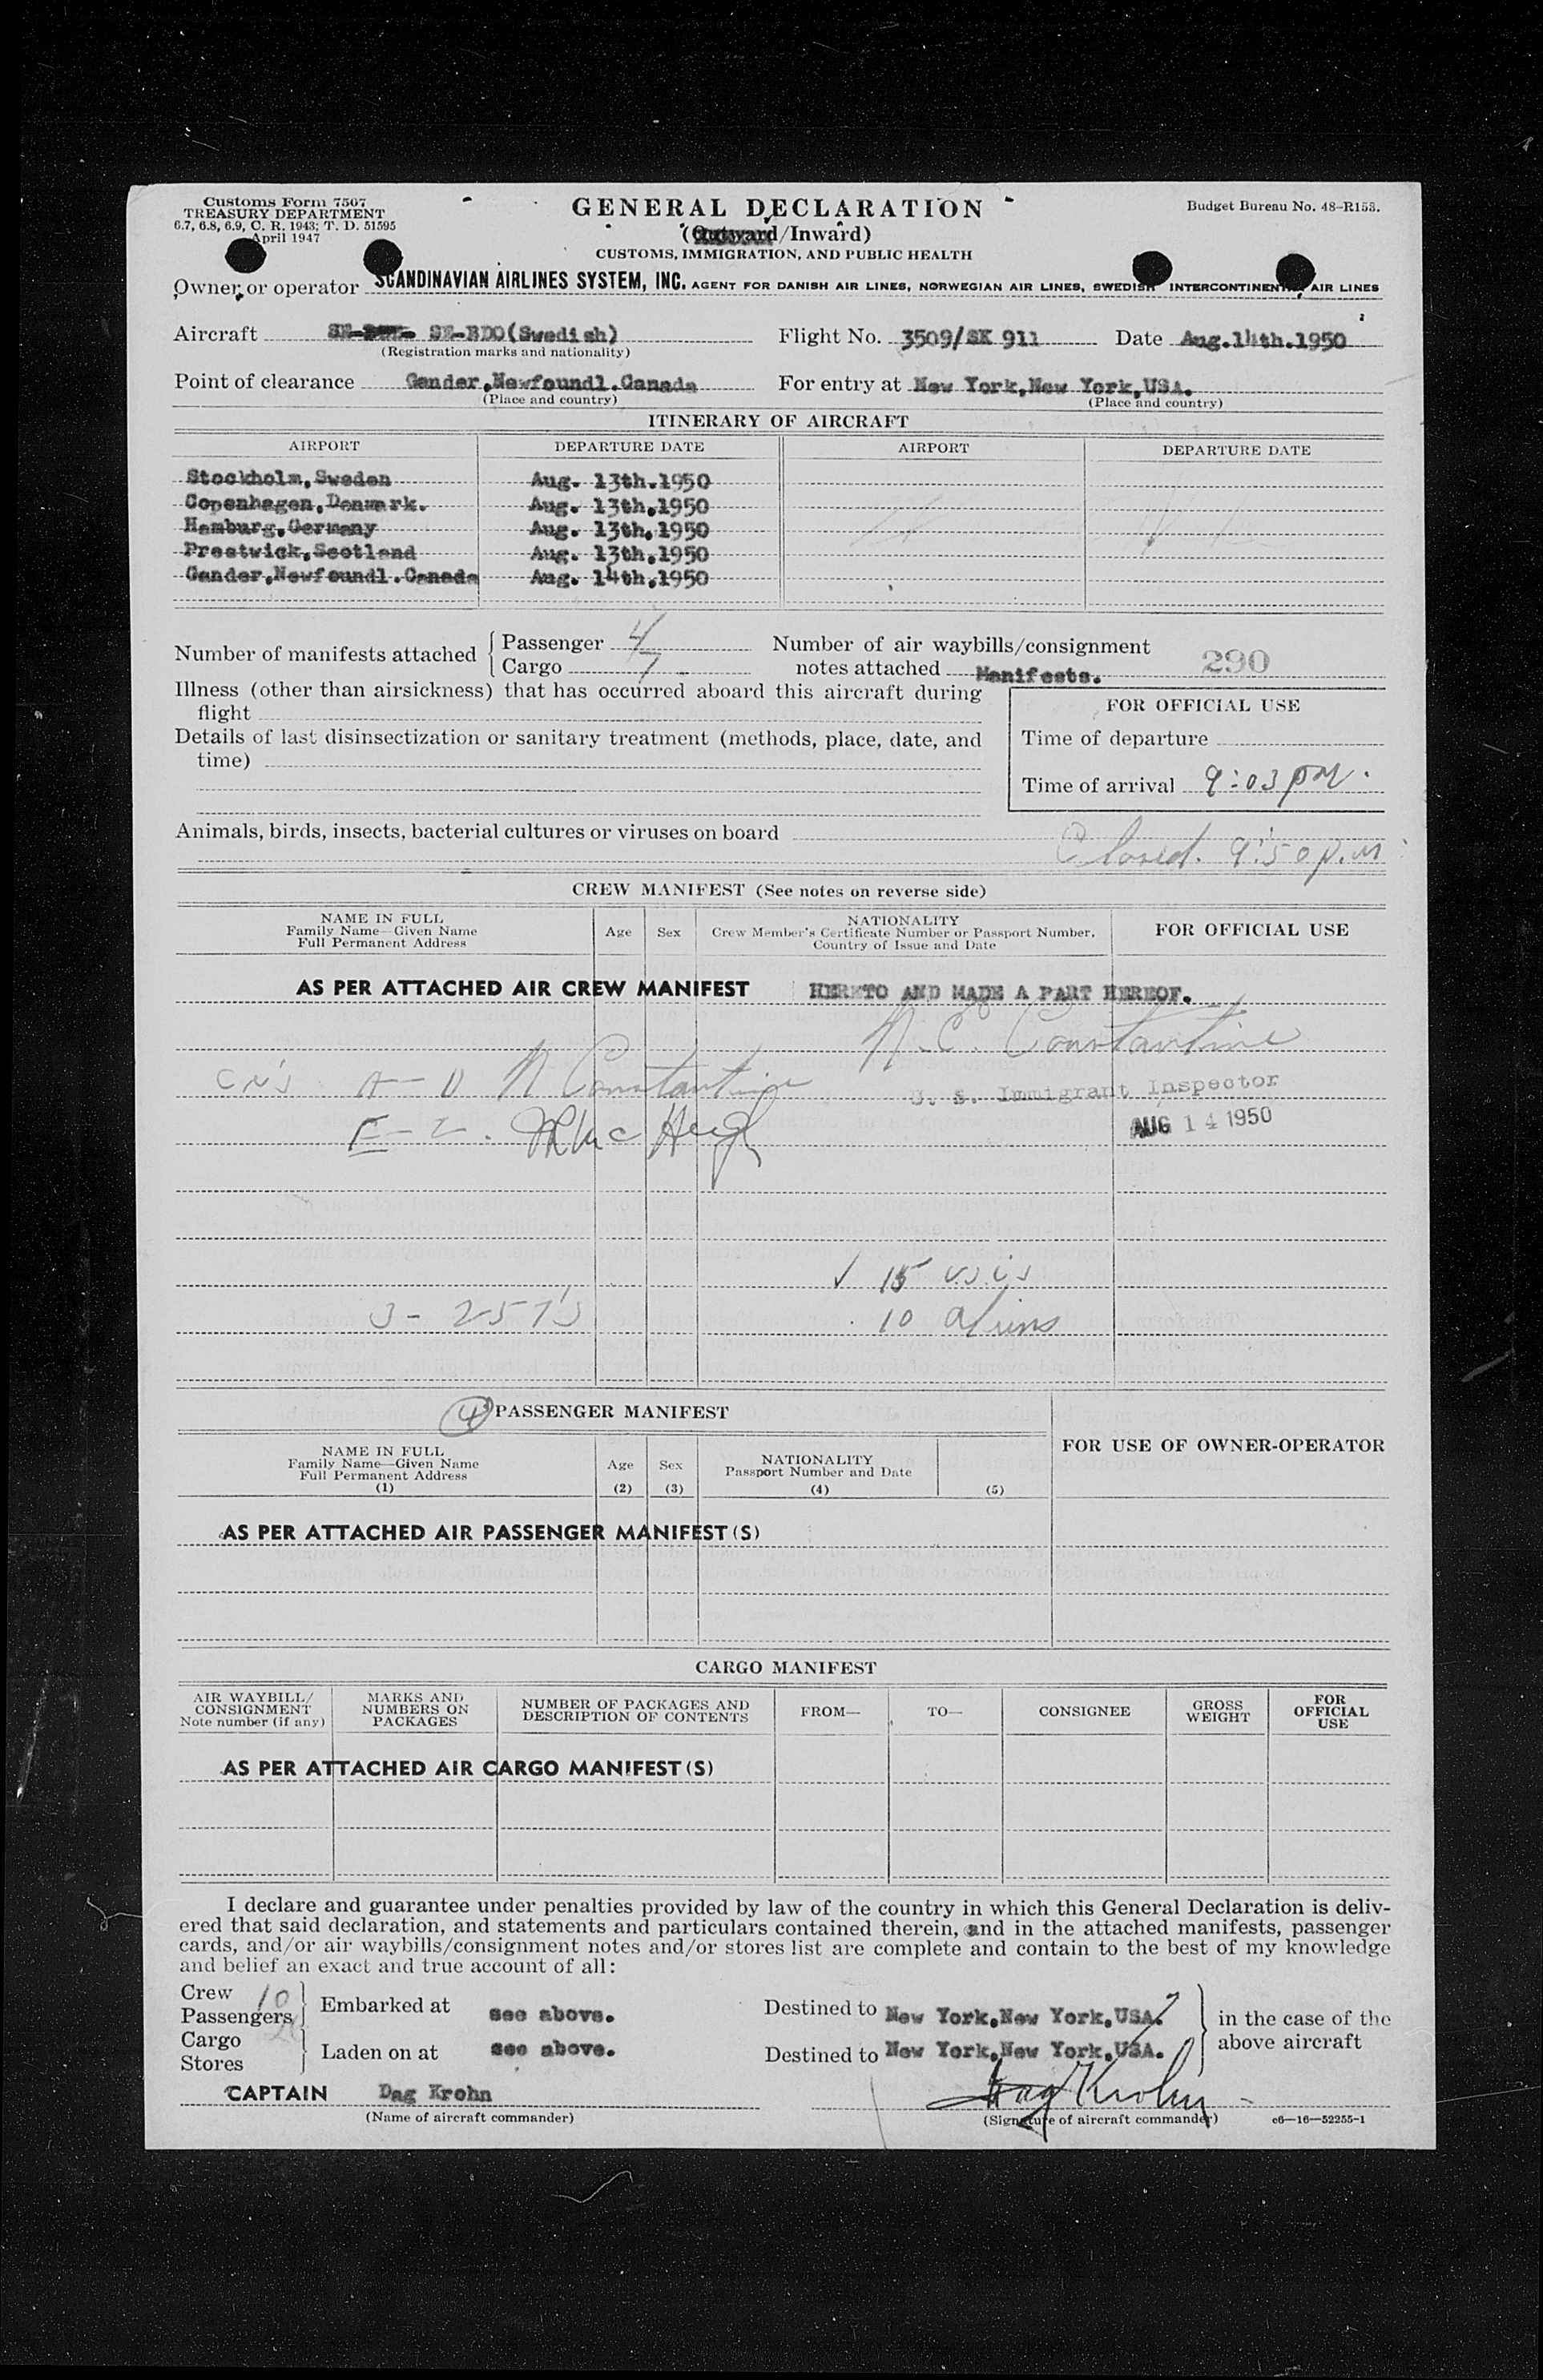 Customs Form 7507
TREASURY DEPARTMENT
6.7, 6.8, 6.9, C. R. 1943; T. D. 51595
April 1947
GENERAL DECLARATION
(Outward/Inward)
CUSTOMS, IMMIGRATION, AND PUBLIC HEALTH
Budget Bureau No. 48-R153.
Owner or operator SCANDINAVIAN AIRLINES SYSTEM, INC. AGENT FOR DANISH AIR LINES, NORWEGIAN AIR LINES, SWEDISH INTERCONTINENTAL AIR LINES
Aircraft SE-BDO(Swedish) Flight No. 3509/SK 911 Date Aug.14th.1950
(Registration marks and nationality)
Point of clearance Gander,Newfoundl.Canada For entry at New York,New York,USA.
(Place and country) (Place and country)
ITINERARY OF AIRCRAFT
AIRPORT DEPARTURE DATE AIRPORT DEPARTURE DATE
Stockholm,Sweden Aug. 13th.1950
Copenhagen,Denmark. Aug. 13th,1950
Hamburg,Germany Aug. 13th,1950
Prestwick,Scotland Aug. 13th,1950
Gander,Newfoundl.Canada Aug. 14th,1950
Number of manifests attached { Passenger 4
Cargo 7
Number of air waybills/consignment
notes attached Manifests. 290
Illness (other than airsickness) that has occurred aboard this aircraft during
flight
Details of last disinsectization or sanitary treatment (methods, place, date, and
time)
FOR OFFICIAL USE
Time of departure
Time of arrival 9:03 PM.
Animals, birds, insects, bacterial cultures or viruses on board
Closed. 9:50 p.m
CREW MANIFEST (See notes on reverse side)
NAME IN FULL
Family Name—Given Name
Full Permanent Address
Age
Sex
NATIONALITY
Crew Member's Certificate Number or Passport Number,
Country of Issue and Date
FOR OFFICIAL USE
AS PER ATTACHED AIR CREW MANIFEST HERETO AND MADE A PART HEREOF.
N.C. Constantine
A-D N Constantine
U. S. Immigrant Inspector
E-Z.
AUG 14 1950
✓ 15
3- 257's
10 aliens
4 PASSENGER MANIFEST
NAME IN FULL
Family Name—Given Name
Full Permanent Address
(1)
Age
(2)
Sex
(3)
NATIONALITY
Passport Number and Date
(4)
(5)
FOR USE OF OWNER-OPERATOR
AS PER ATTACHED AIR PASSENGER MANIFEST(S)
CARGO MANIFEST
AIR WAYBILL/
CONSIGNMENT
Note number (if any)
MARKS AND
NUMBERS ON
PACKAGES
NUMBER OF PACKAGES AND
DESCRIPTION OF CONTENTS
FROM—
TO—
CONSIGNEE
GROSS
WEIGHT
FOR
OFFICIAL
USE
AS PER ATTACHED AIR CARGO MANIFEST(S)
I declare and guarantee under penalties provided by law of the country in which this General Declaration is deliv-
ered that said declaration, and statements and particulars contained therein, and in the attached manifests, passenger
cards, and/or air waybills/consignment notes and/or stores list are complete and contain to the best of my knowledge
and belief an exact and true account of all:
Crew 10
Passengers
Embarked at see above. Destined to New York,New York,USA.
Cargo
Stores
Laden on at see above. Destined to New York,New York,USA.
in the case of the
above aircraft
CAPTAIN Dag Krohn
(Name of aircraft commander)
Dag Krohn
(Signature of aircraft commander)
c6—16—52255-1